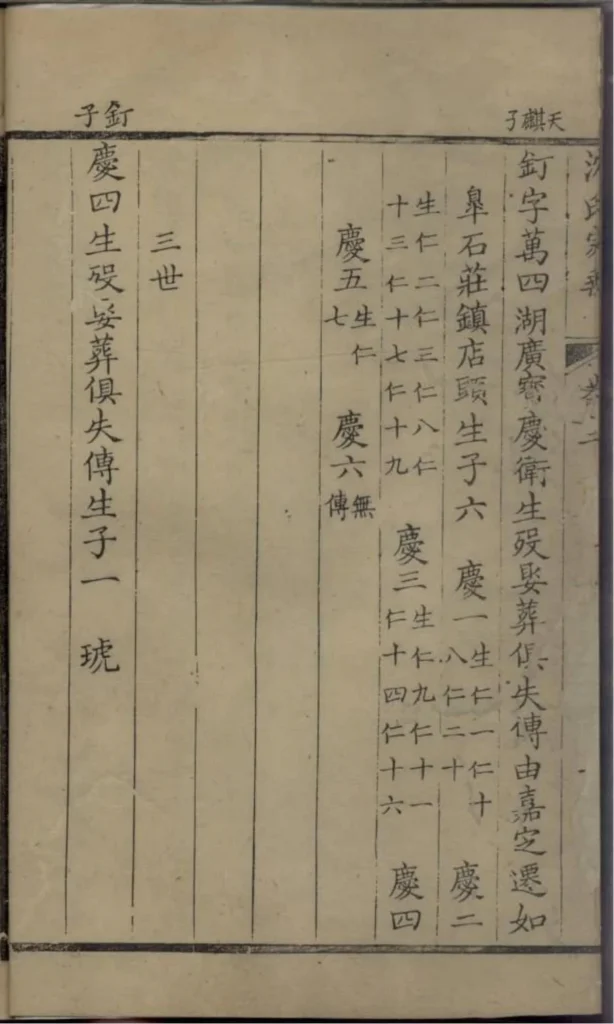 沈氏宗譜 卷二
天麒子
釘字萬四湖廣寶慶衛生歿娶葬俱失傳由嘉定遷如
皐石莊鎮店頭生子六 慶一生仁一仁十八仁二十 慶二
生仁二仁三仁八仁十三仁十七仁十九 慶三生仁九仁十一仁十四仁十六 慶四
慶五生仁七 慶六無傳
三世
釘子
慶四生歿娶葬俱失傳生子一 琥